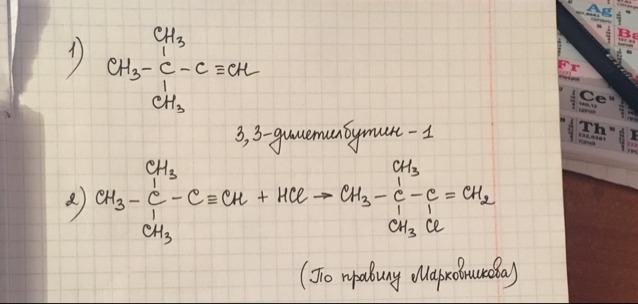 1)
CH₃
CH₃ – C – C ≡ CH
CH₃
3,3-диметилбутин-1
CH₃ CH₃
2) CH₃ – C – C ≡ CH + HCl → CH₃ – C – C = CH₂
CH₃ CH₃ Cl
(По правилу Марковникова)
Ag
Ba
Fr
Ce
Th